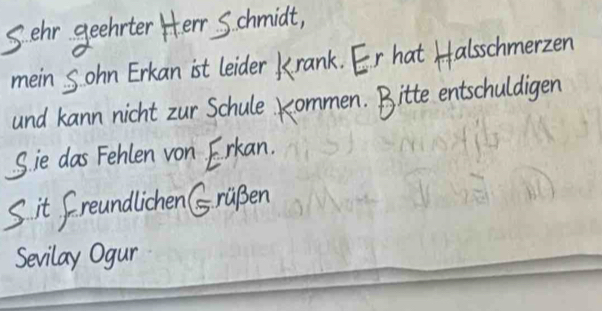 Sehr geehrter Herr Schmidt,
mein Sohn Erkan ist leider Krank. Er hat Halsschmerzen
und kann nicht zur Schule Kommen. Bitte entschuldigen
Sie das Fehlen von Erkan.
Sit freundlichen Grüßen
Sevilay Ogur